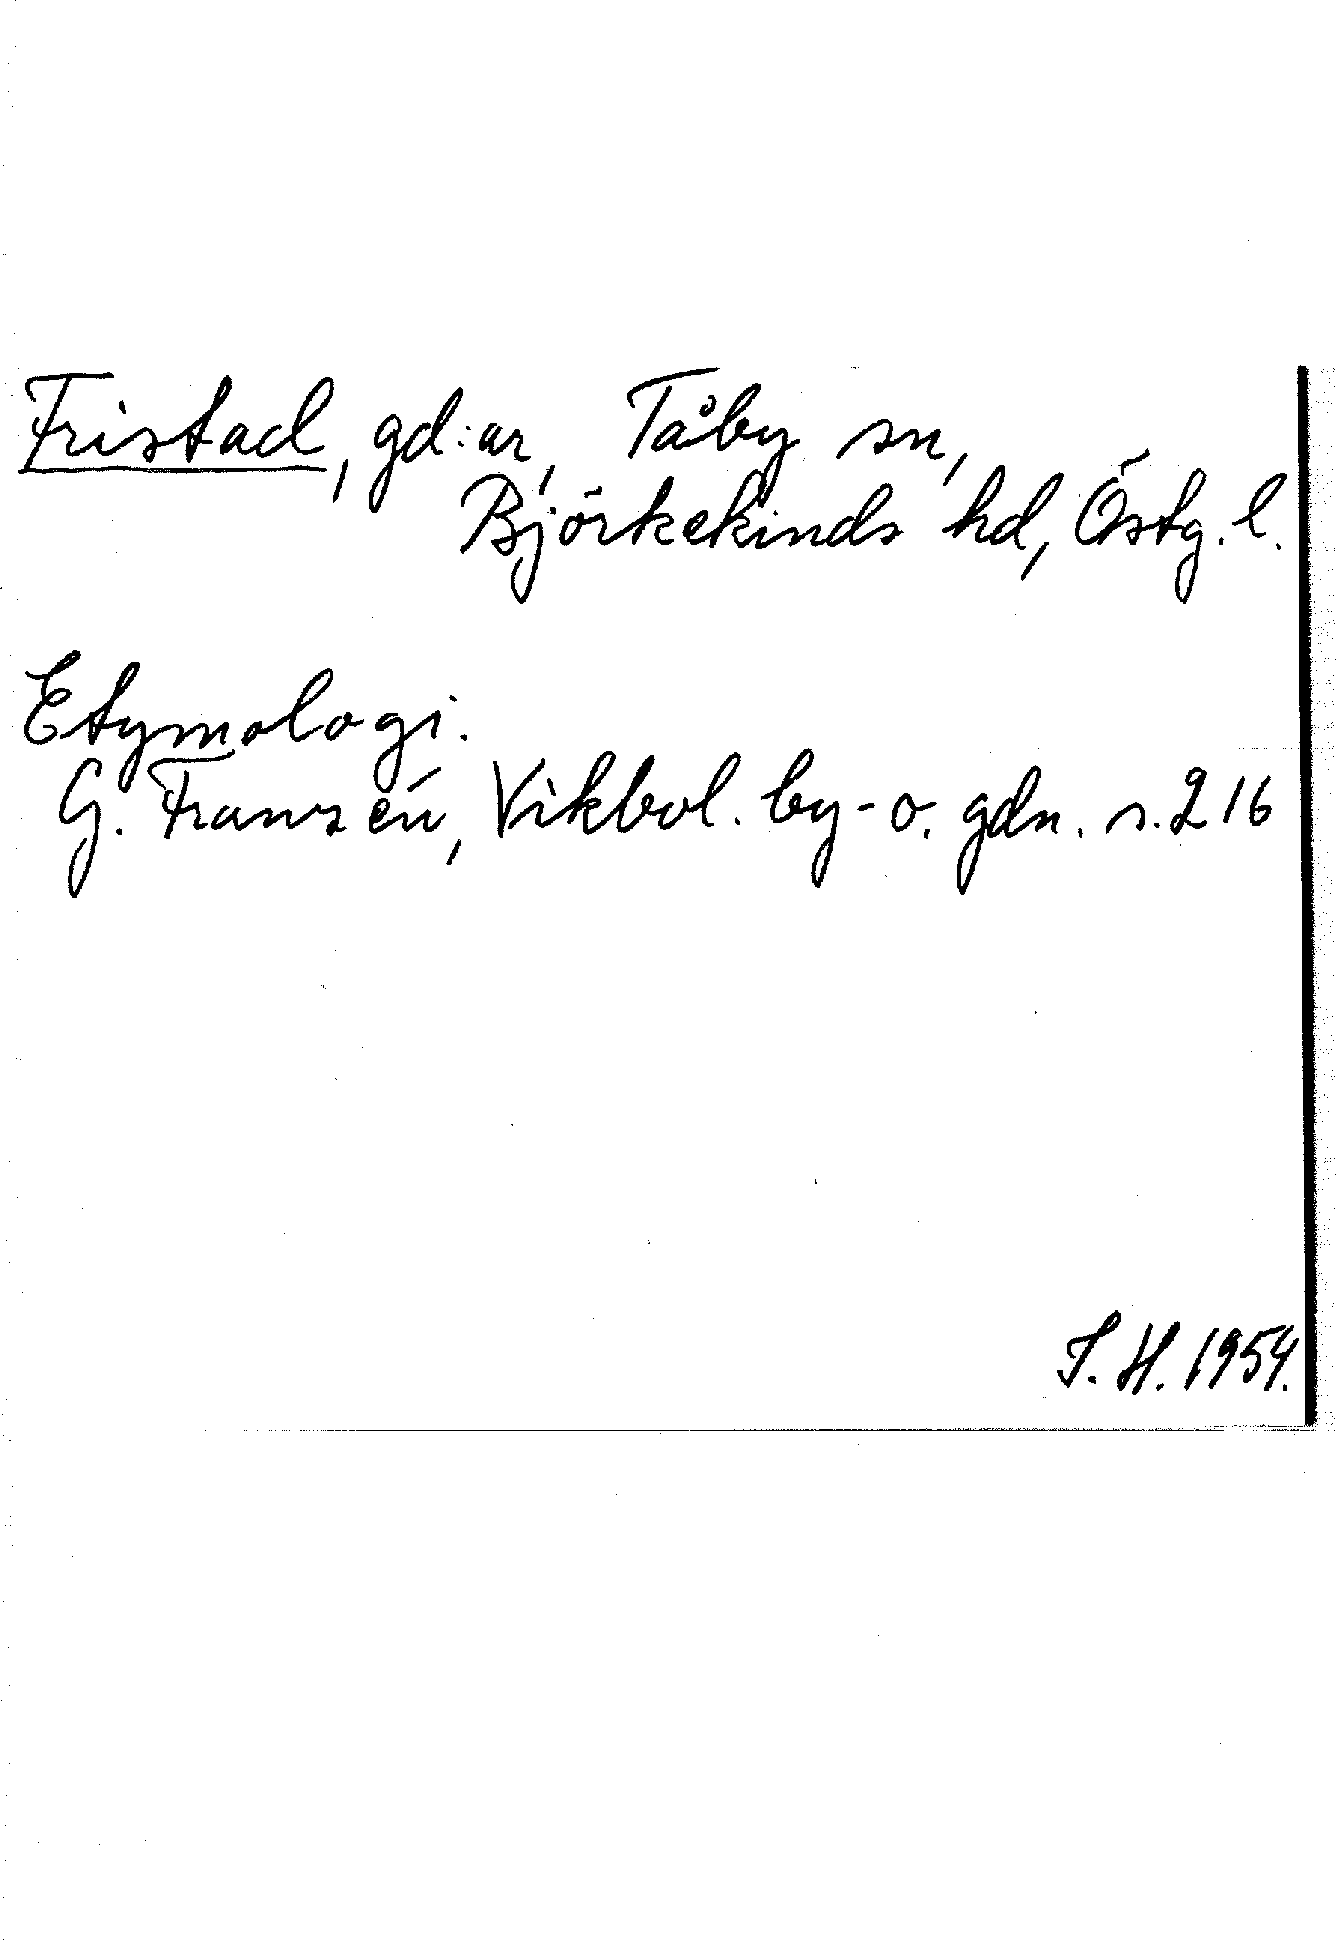 Fristad, gd:ar, Tåby sn,
Björkekinds hd, Östg. l.
Etymologi.
G. Franzén, Vikbol. by- o. gdn. s. 216
S. H. 1954.